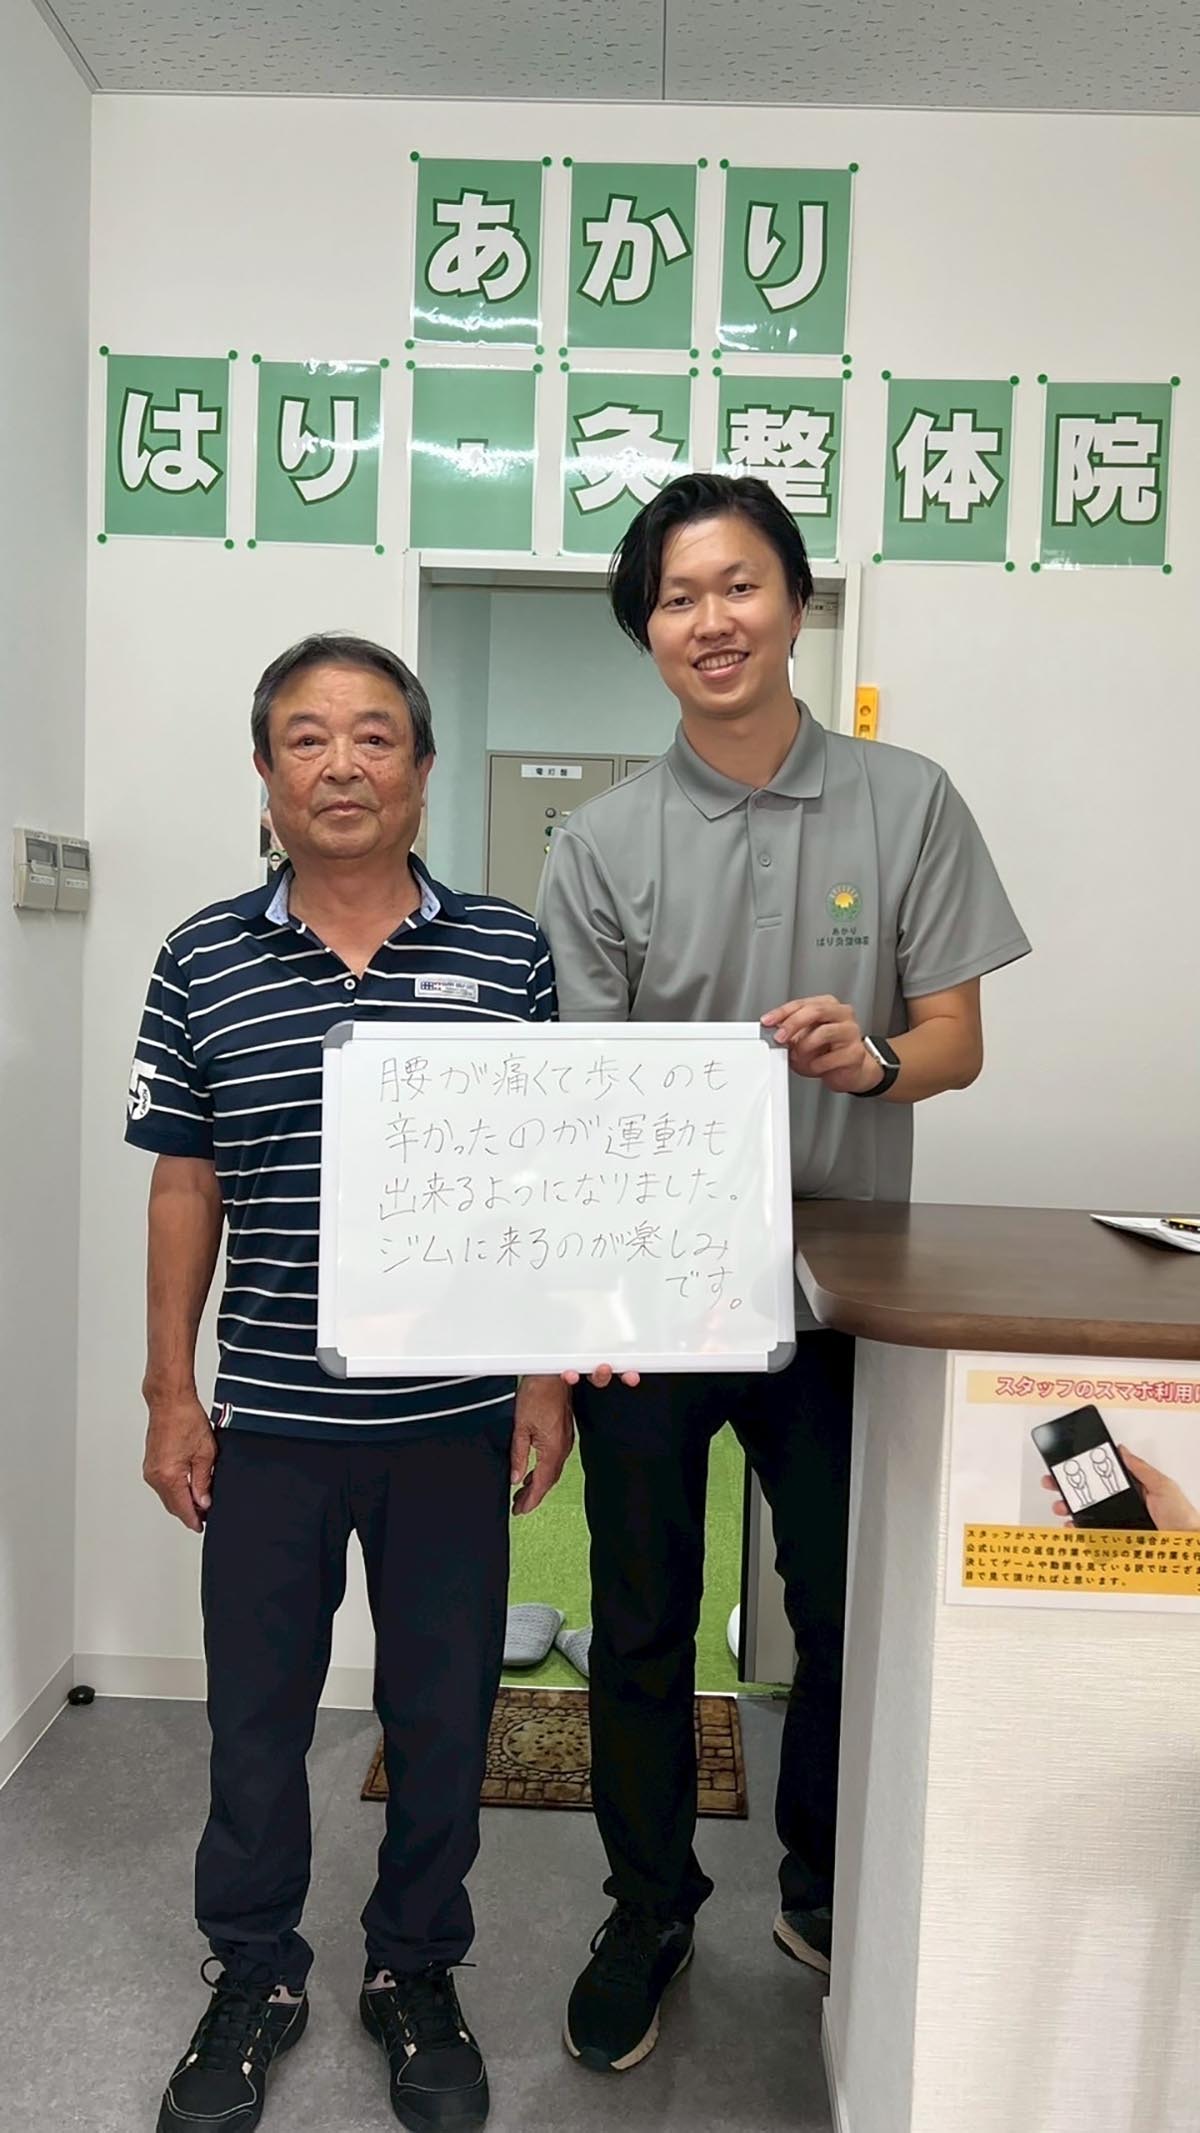 あかり
はり・灸整体院
電灯盤
あかり
はり灸整体院
腰が痛くて歩くのも
辛かったのが運動も
出来るようになりました。
ジムに来るのが楽しみ
です。
スタッフのスマホ利用
スタッフがスマホ利用している場合がござい
公式LINEの返信作業やSNSの更新作業を行
決してゲームや動画を見ている訳ではござま
目で見て頂ければと思います。